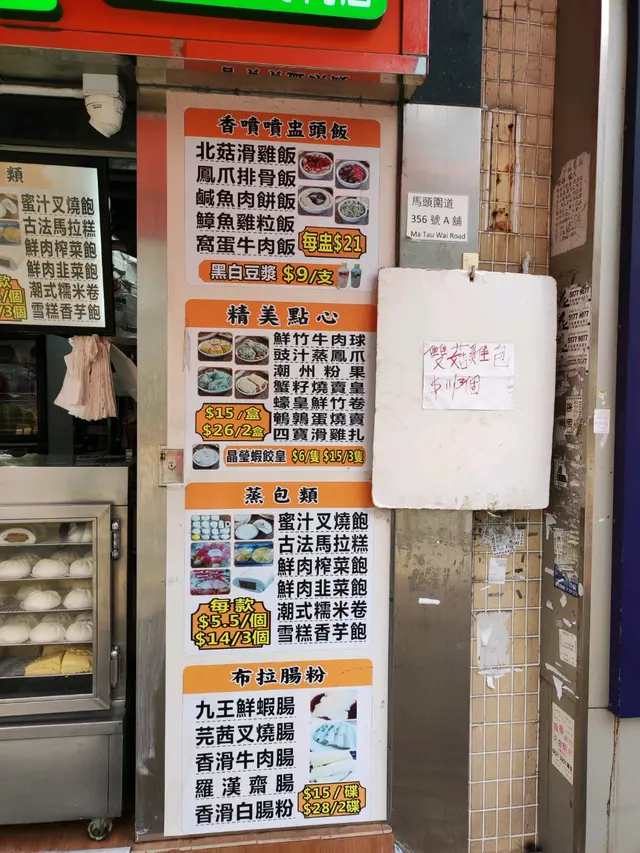 香噴噴盅頭飯
北菇滑雞飯
鳳爪排骨飯
鹹魚肉餅飯
鱆魚雞粒飯
窩蛋牛肉飯
每盅$21
黑白豆漿 $9/支
精美點心
鮮竹牛肉球
豉汁蒸鳳爪
潮州粉果
蟹籽燒賣皇
蠔皇鮮竹卷
鵪鶉蛋燒賣
四寶滑雞扎
$15/盒
$26/2盒
晶瑩蝦餃皇 $6/隻 $15/3隻
蒸包類
蜜汁叉燒飽
古法馬拉糕
鮮肉榨菜飽
鮮肉韭菜飽
潮式糯米卷
雪糕香芋飽
每款
$5.5/個
$14/3個
布拉腸粉
九王鮮蝦腸
芫茜叉燒腸
香滑牛肉腸
羅漢齋腸
香滑白腸粉
$15/碟
$28/2碟
類
蜜汁叉燒飽
古法馬拉糕
鮮肉榨菜飽
鮮肉韭菜飽
潮式糯米卷
雪糕香芋飽
/個
/3個
馬頭圍道
356 號 A 舖
Ma Tau Wai Road
雙菇雞包